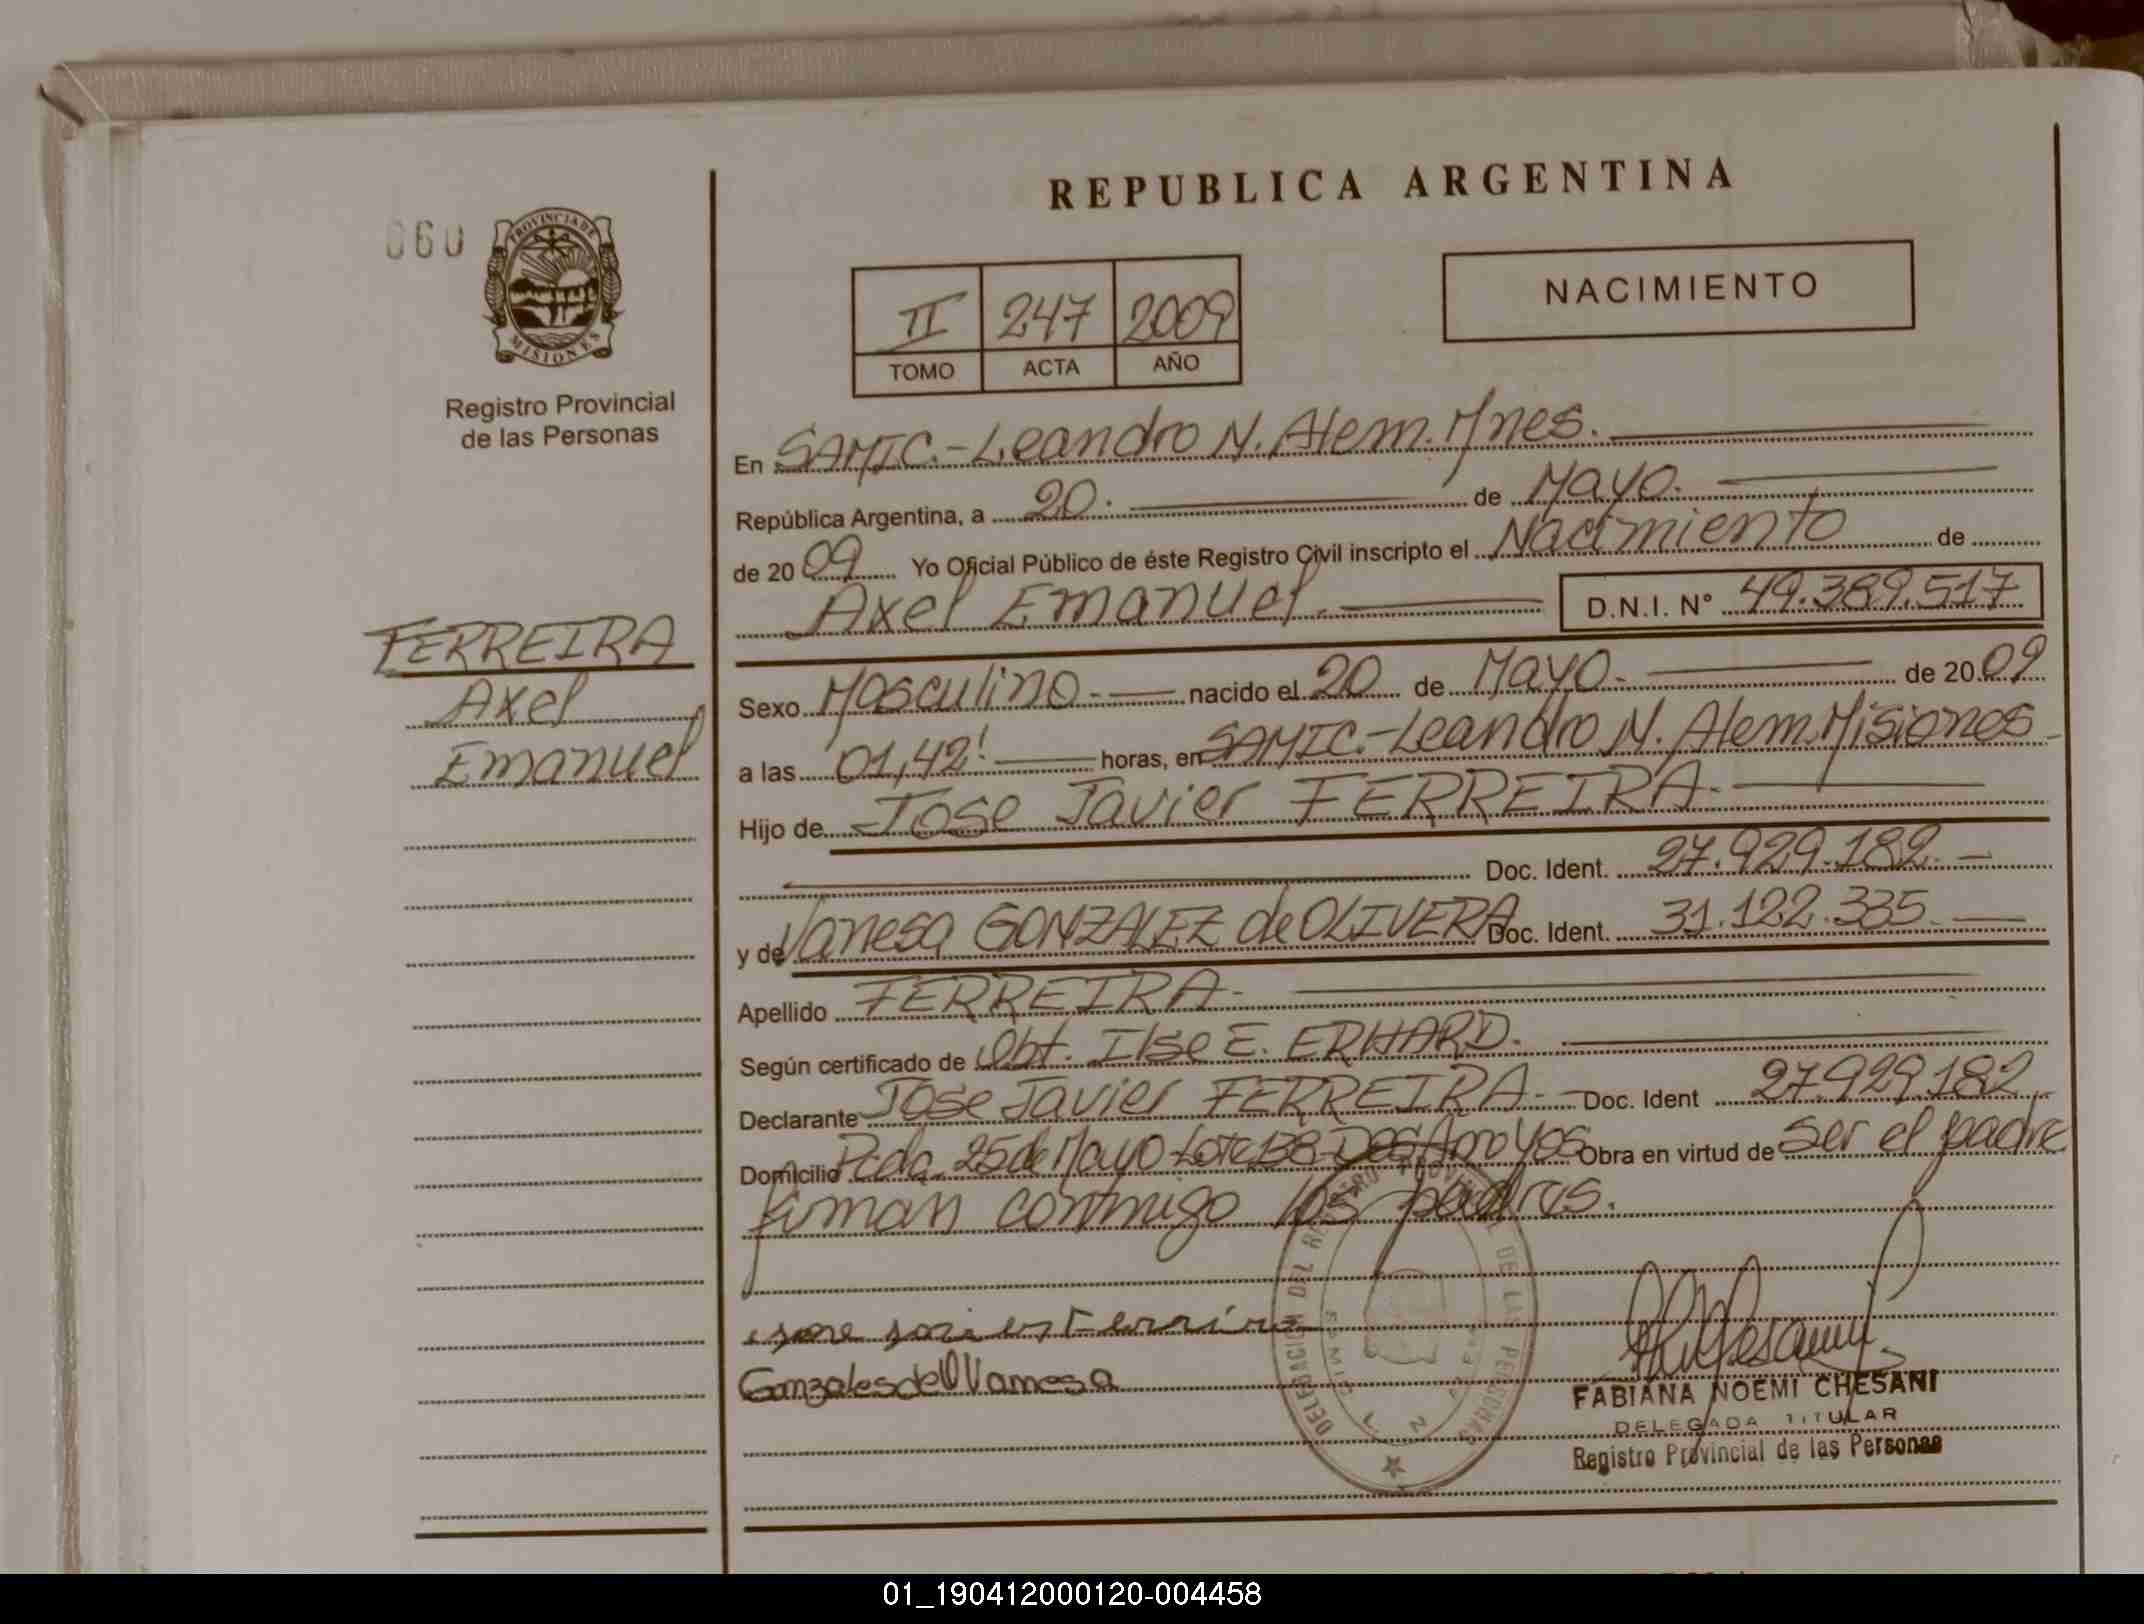 060
PROVINCIA DE
MISIONES
Registro Provincial
de las Personas
FERREIRA
Axel
Emanuel
REPUBLICA ARGENTINA
II 247 2009
TOMO ACTA AÑO
NACIMIENTO
En SAMIC.-Leandro N. Alem. Mnes.
República Argentina, a 20. de Mayo.
de 2009 Yo Oficial Público de éste Registro Civil inscripto el Nacimiento de
Axel Emanuel. D.N.I. N° 49.389.517
Sexo Masculino nacido el 20 de Mayo. de 2009
a las 01,42' horas, en SAMIC.-Leandro N. Alem. Misiones
Hijo de Jose Javier FERREIRA.
Doc. Ident. 27.929.182.
y de Vanesa GONZALEZ de OLIVERA Doc. Ident. 31.122.335.
Apellido FERREIRA
Según certificado de Obt. Ilse E. ERHARD.
Declarante Jose Javier FERREIRA Doc. Ident 27.929.182
Domicilio Pcda. 25 de Mayo Lote 138 Dos Arroyos Obra en virtud de Ser el padre
firman conmigo los padres.
DELEGACION DEL REGISTRO PROVINCIAL DE LAS PERSONAS
Gonzales de O Vanesa
FABIANA NOEMI CHESANI
DELEGADA TITULAR
Registro Provincial de las Personas
01_190412000120-004458